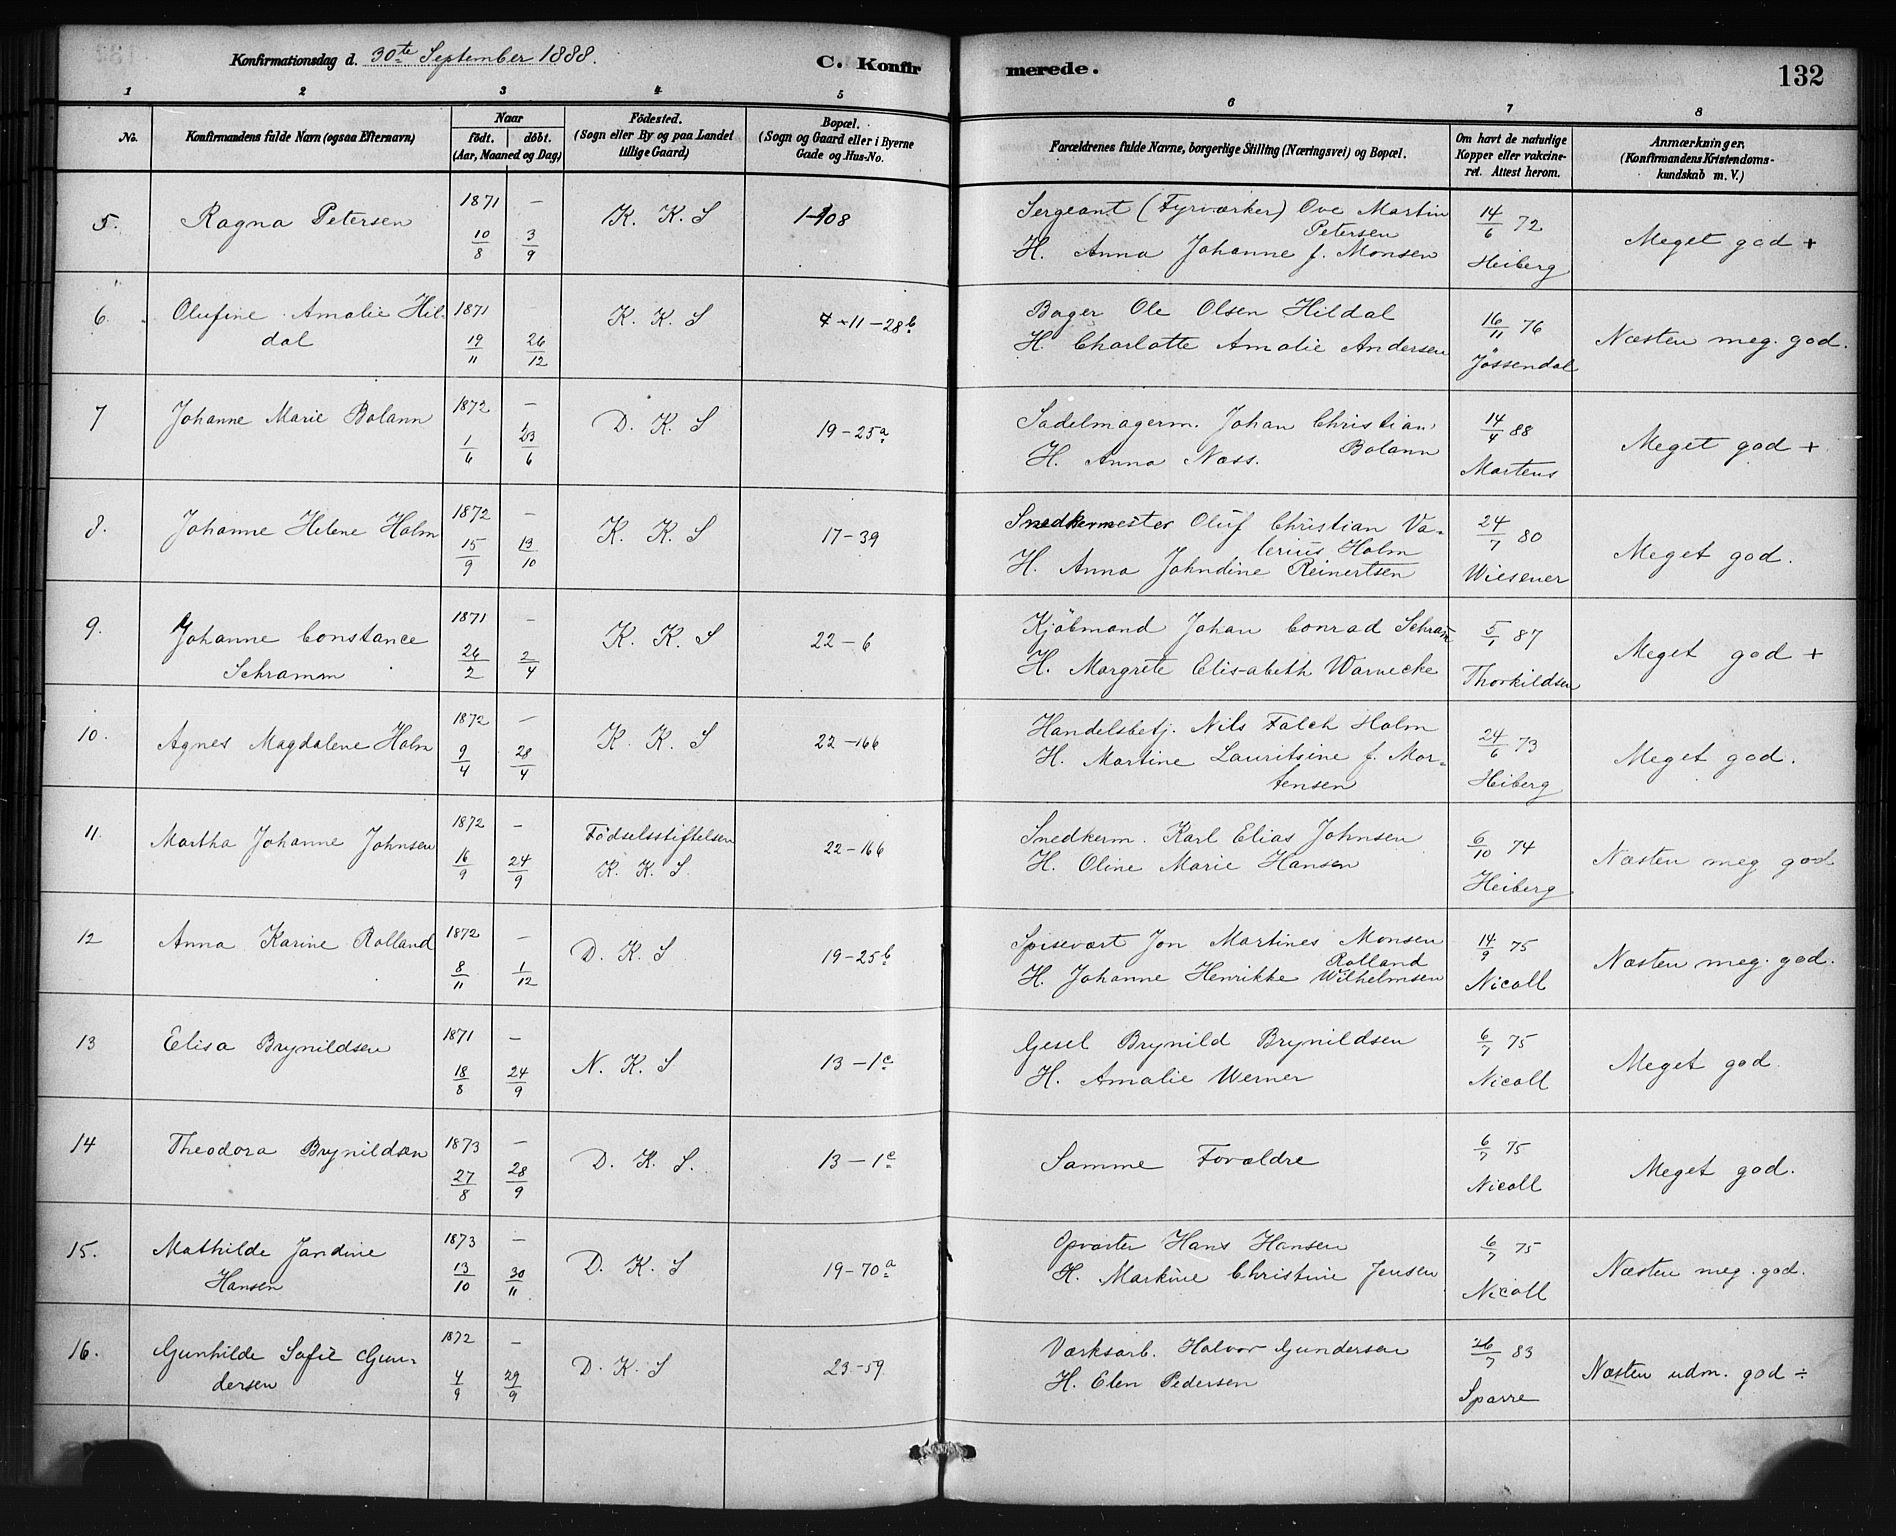 Konfirmationsdag d. 30te September 1888. C. Konfirmerede. 132
1 2 3 4 5 6 7 8
No. Konfirmandens fulde Navn (ogsaa Efternavn) Naar født. døbt. (Aar, Maaned og Dag) Fødested. (Sogn eller By og paa Landet tillige Gaard) Bopæl. (Sogn og Gaard eller i Byerne Gade og Hus-No. Forældrenes fulde Navne, borgerlige Stilling (Næringsvei) og Bopæl. Om havt de naturlige Kopper eller vakcineret. Attest herom. Anmærkninger, (Konfirmandens Kristendomskundskab m. V.)
5. Ragna Petersen 1871 10/8 — 3/9 K. K. S 1-108 Sergeant (Fyrværker) Ove Martin Petersen
H. Anna Johanne f. Monsen 14/6 72 Heiberg Meget god +
6. Olufine Amalie Hildal 1871 19/11 26/12 K. K. S 4-11-28b Bager Ole Olsen Hildal
H. Charlotte Amalie Andersen 16/11 76 Jøssendal Næsten meg. god.
7 Johanne Marie Bolann 1872 1/6 — 23/6 D. K. S 19-25a Sadelmagerm. Johan Christian Bolann
H. Anna Næss. 14/4 88 Martens Meget god +
8. Johanne Helene Holm 1872 15/9 — 13/10 K. K. S 17-39 Snedkermester Oluf Christian Valerius Holm
H. Anna Johndine Reinertsen 24/7 80 Wiesener Meget god.
9. Johanne Constance Schramm 1871 26/2 — 2/4 K. K. S 22-6 Kjøbmand Johan Conrad Schram
H. Margrete Elisabeth Warnecke 5/1 87 Thorkildsen Meget god +
10. Agnes Magdalene Holm 1872 9/4 — 28/4 K. K. S 22-166 Handelsbetj. Nils Falch Holm
H. Martine Lauritsine f. Mortensen 24/6 73 Heiberg Meget god.
11. Martha Johanne Johnsen 1872 16/9 — 24/9 Fødselsstiftelsen K. K. S. 22-166 Snedkerm. Karl Elias Johnsen
H. Oline Marie Hansen 6/10 74 Heiberg Næsten meg god
12 Anna Karine Rolland 1872 8/11 — 1/12 D. K. S 19-25b Spisevært Jon Martines Monsen Rolland
H. Johanne Henrikke Wilhelmsen 14/9 75 Nicoll Næsten meg. god.
13 Elisa Brynildsen 1871 18/8 — 24/9 N. K. S 13-1c Gesel Brynild Brynildsen
H. Amalie Werner 6/7 75 Nicoll Meget god.
14 Theodora Brynildsen 1873 27/8 — 28/9 D. K. S. 13-1c Samme Forældre 6/7 75 Nicoll Meget god.
15. Mathilde Jandine Hansen 1873 13/10 — 30/11 D. K. S 19-70a Opvarter Hans Hansen
H. Markine Christine Jensen 6/7 75 Nicoll Næsten meg. god.
16. Gunhilde Sofie Gundersen 1872 4/9 — 29/9 D. K. S 23-59 Værksarb. Halvor Gundersen
H. Elen Pedersen 26/7 83 Sparre Næsten udm. god ÷